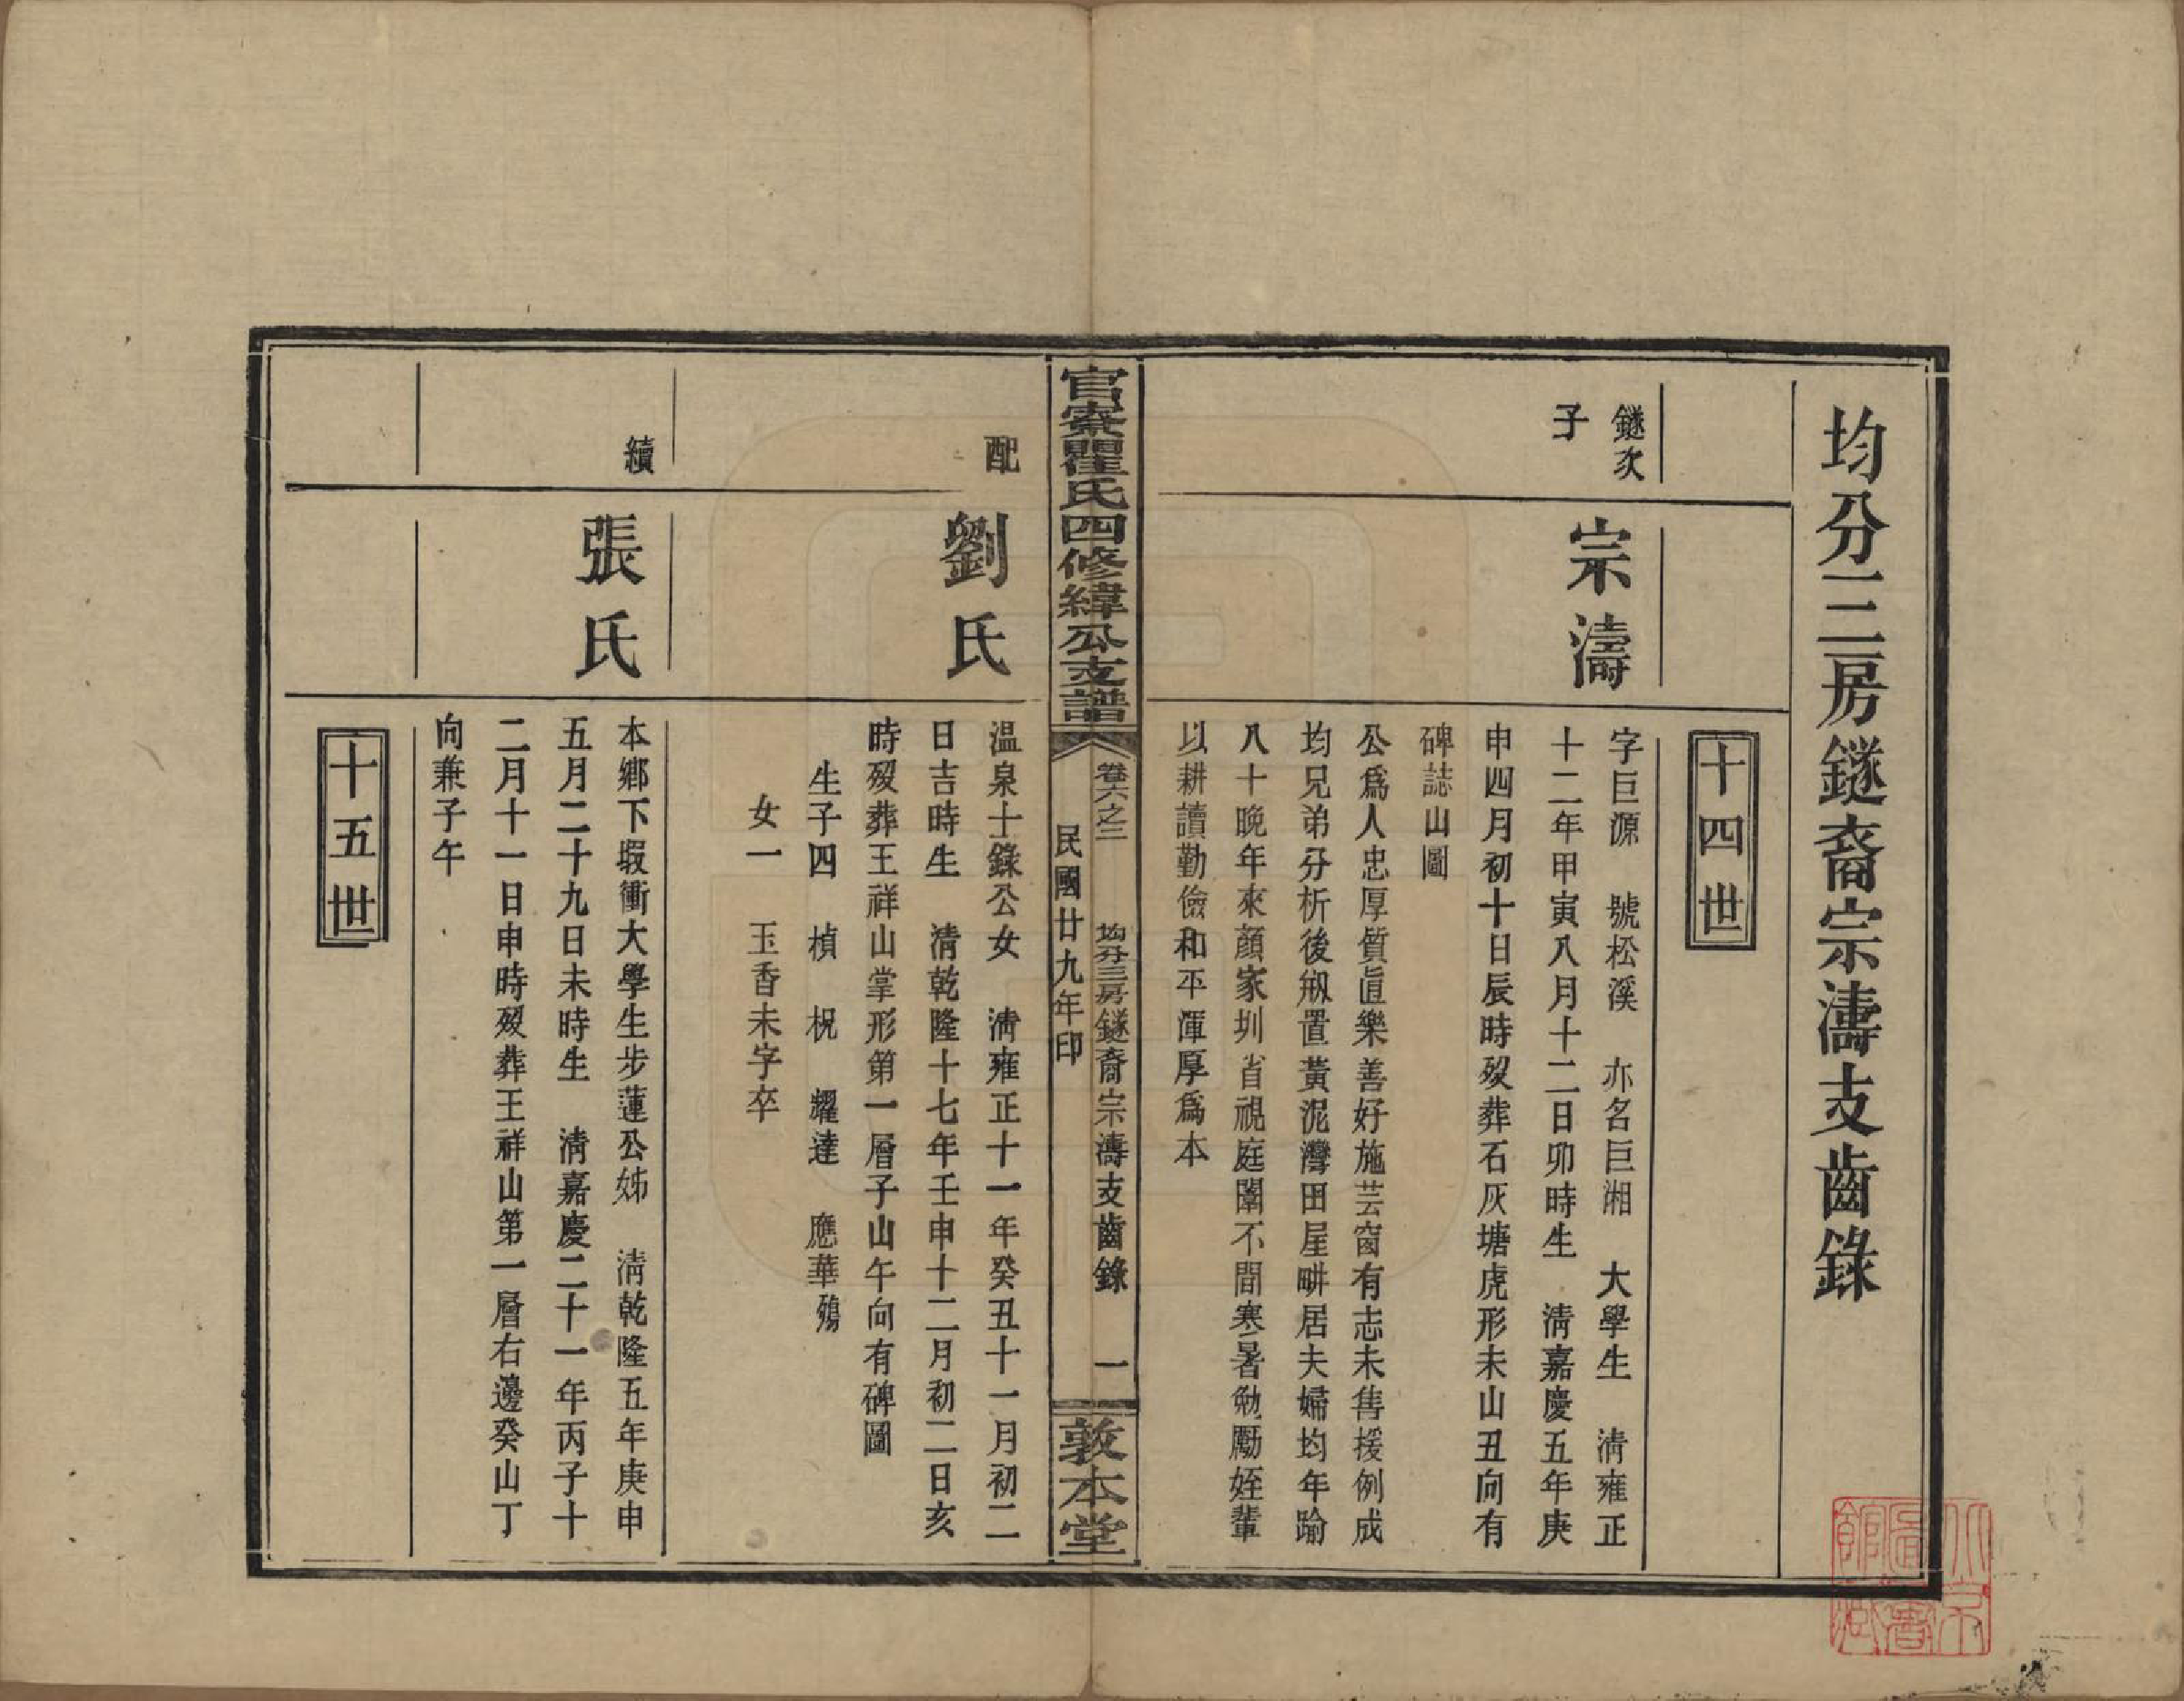 均分三房鐩裔宗濤支齒錄
十四世
鐩次
子
宗濤
字巨源 號松溪 亦名巨湘 大學生 清雍正
十二年甲寅八月十二日卯時生 清嘉慶五年庚
申四月初十日辰時歿葬石灰塘虎形未山丑向有
碑誌山圖
公爲人忠厚質直樂善好施芸窗有志未售援例成
均兄弟分析後剏置黃泥灣田屋畊居夫婦均年踰
八十晚年來顏家圳省視庭闈不間寒暑勉勵姪輩
以耕讀勤儉和平渾厚爲本
官寮瞿氏四修緯公支譜
卷六之三
均分三房鐩裔宗濤支齒錄
一
民國廿九年印
敦本堂
配
劉氏
温泉十錄公女 清雍正十一年癸丑十一月初二
日吉時生 清乾隆十七年壬申十二月初二日亥
時歿葬王祥山掌形第一層子山午向有碑圖
生子四 楨 柷 耀達 應華殤
女一 玉香未字卒
續
張氏
本鄉下塅衝大學生步蓮公姊 清乾隆五年庚申
五月二十九日未時生 清嘉慶二十一年丙子十
二月十一日申時歿葬王祥山第一層右邊癸山丁
向兼子午
十五世
北京圖書館藏